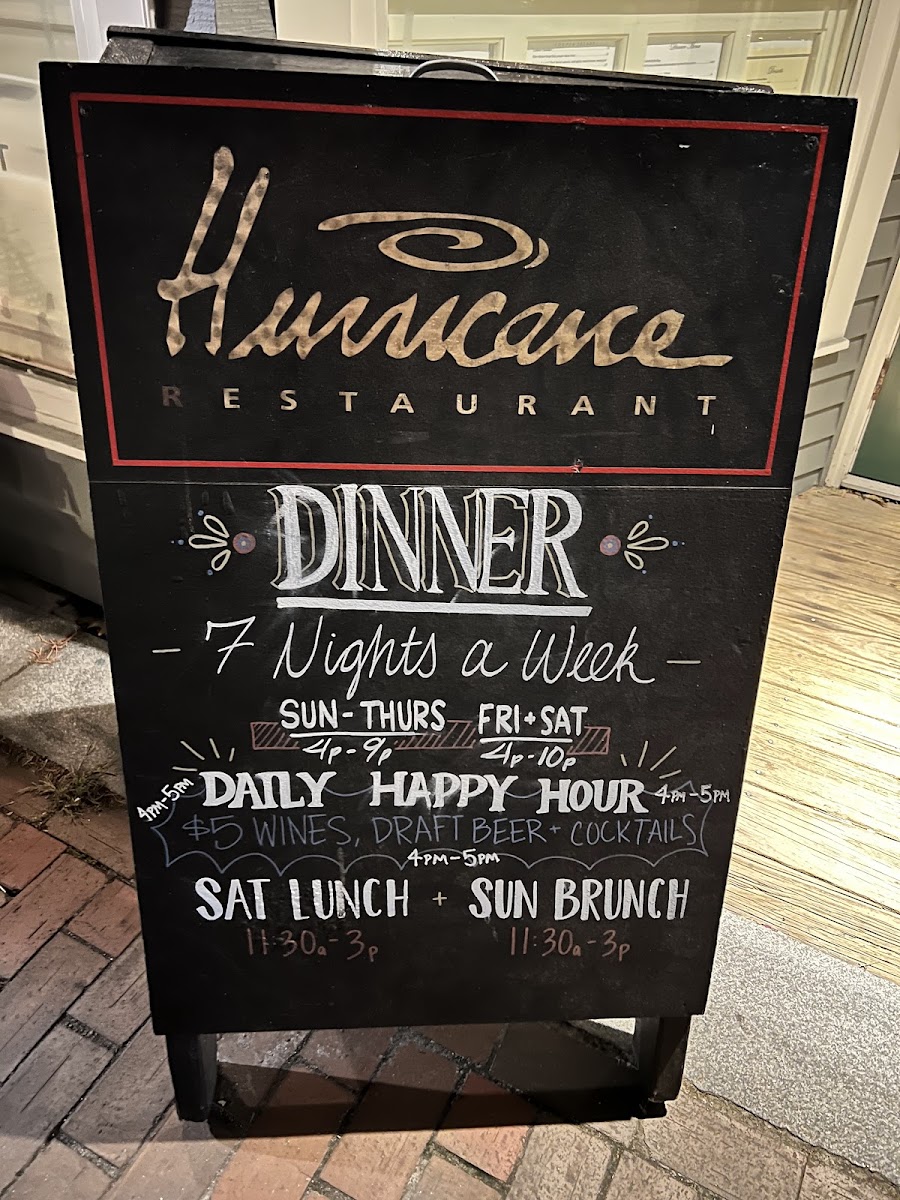 Hurricane
RESTAURANT
DINNER
- 7 Nights a Week -
SUN-THURS FRI+SAT
4p-9p 4p-10p
4PM-5PM DAILY HAPPY HOUR 4PM-5PM
$5 WINES, DRAFT BEER + COCKTAILS
4PM-5PM
SAT LUNCH + SUN BRUNCH
11:30a-3p 11:30a-3p